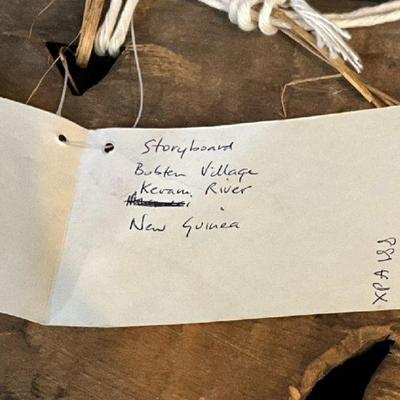 Storyboard
Bobten Village
Keram River
New Guinea
XPA 188